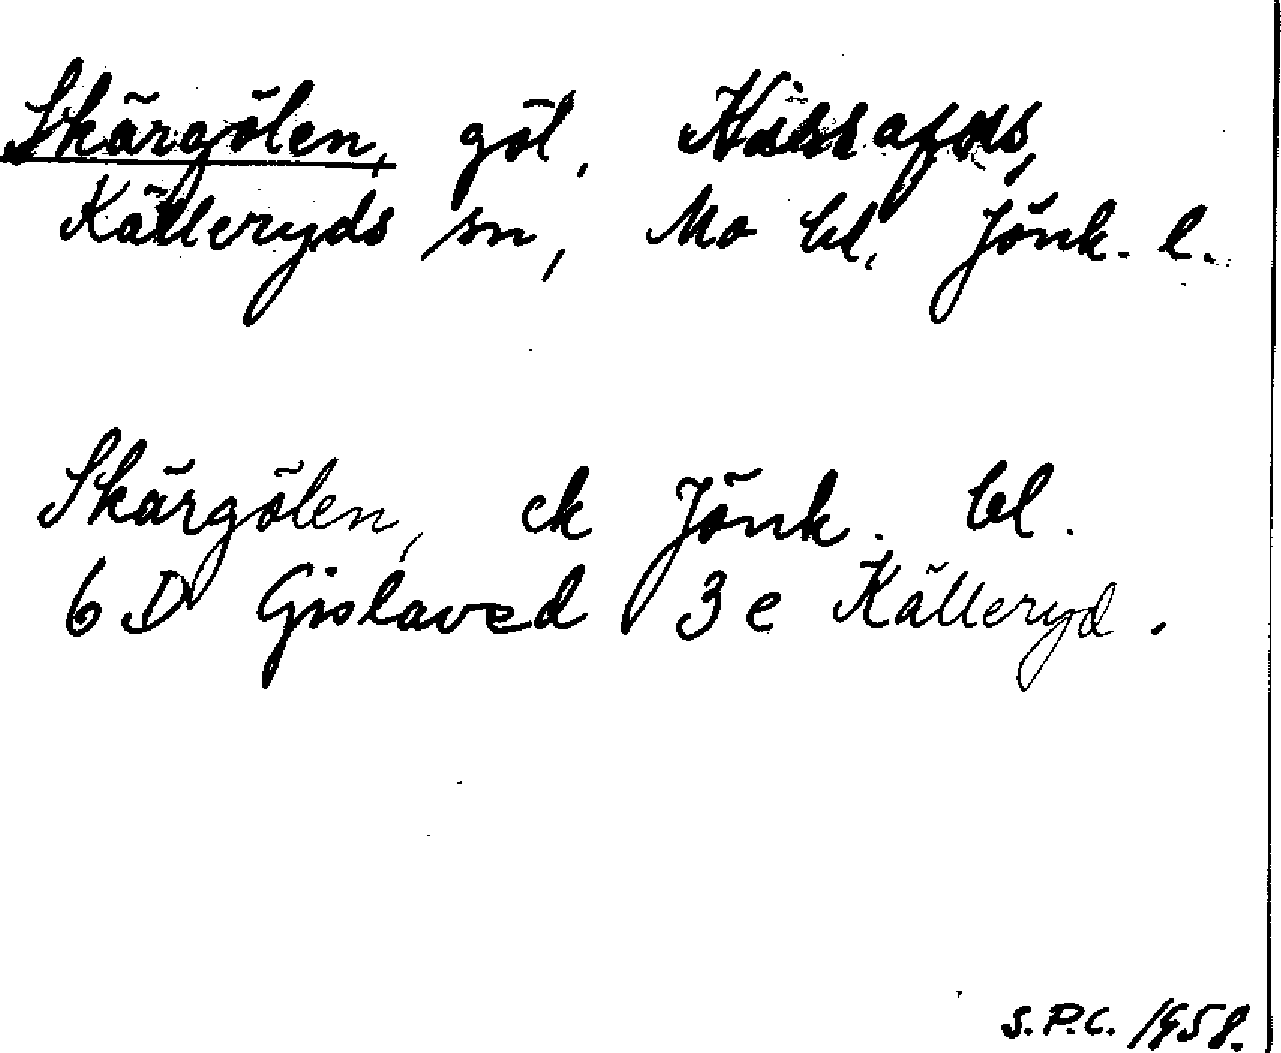 Skärgölen, göl,
Källeryds sn, Mo bl. Jönk. l.
Skärgölen, ek Jönk. bl.
6 D Gislaved 3 e Källeryd.
S.P.C. 1958.